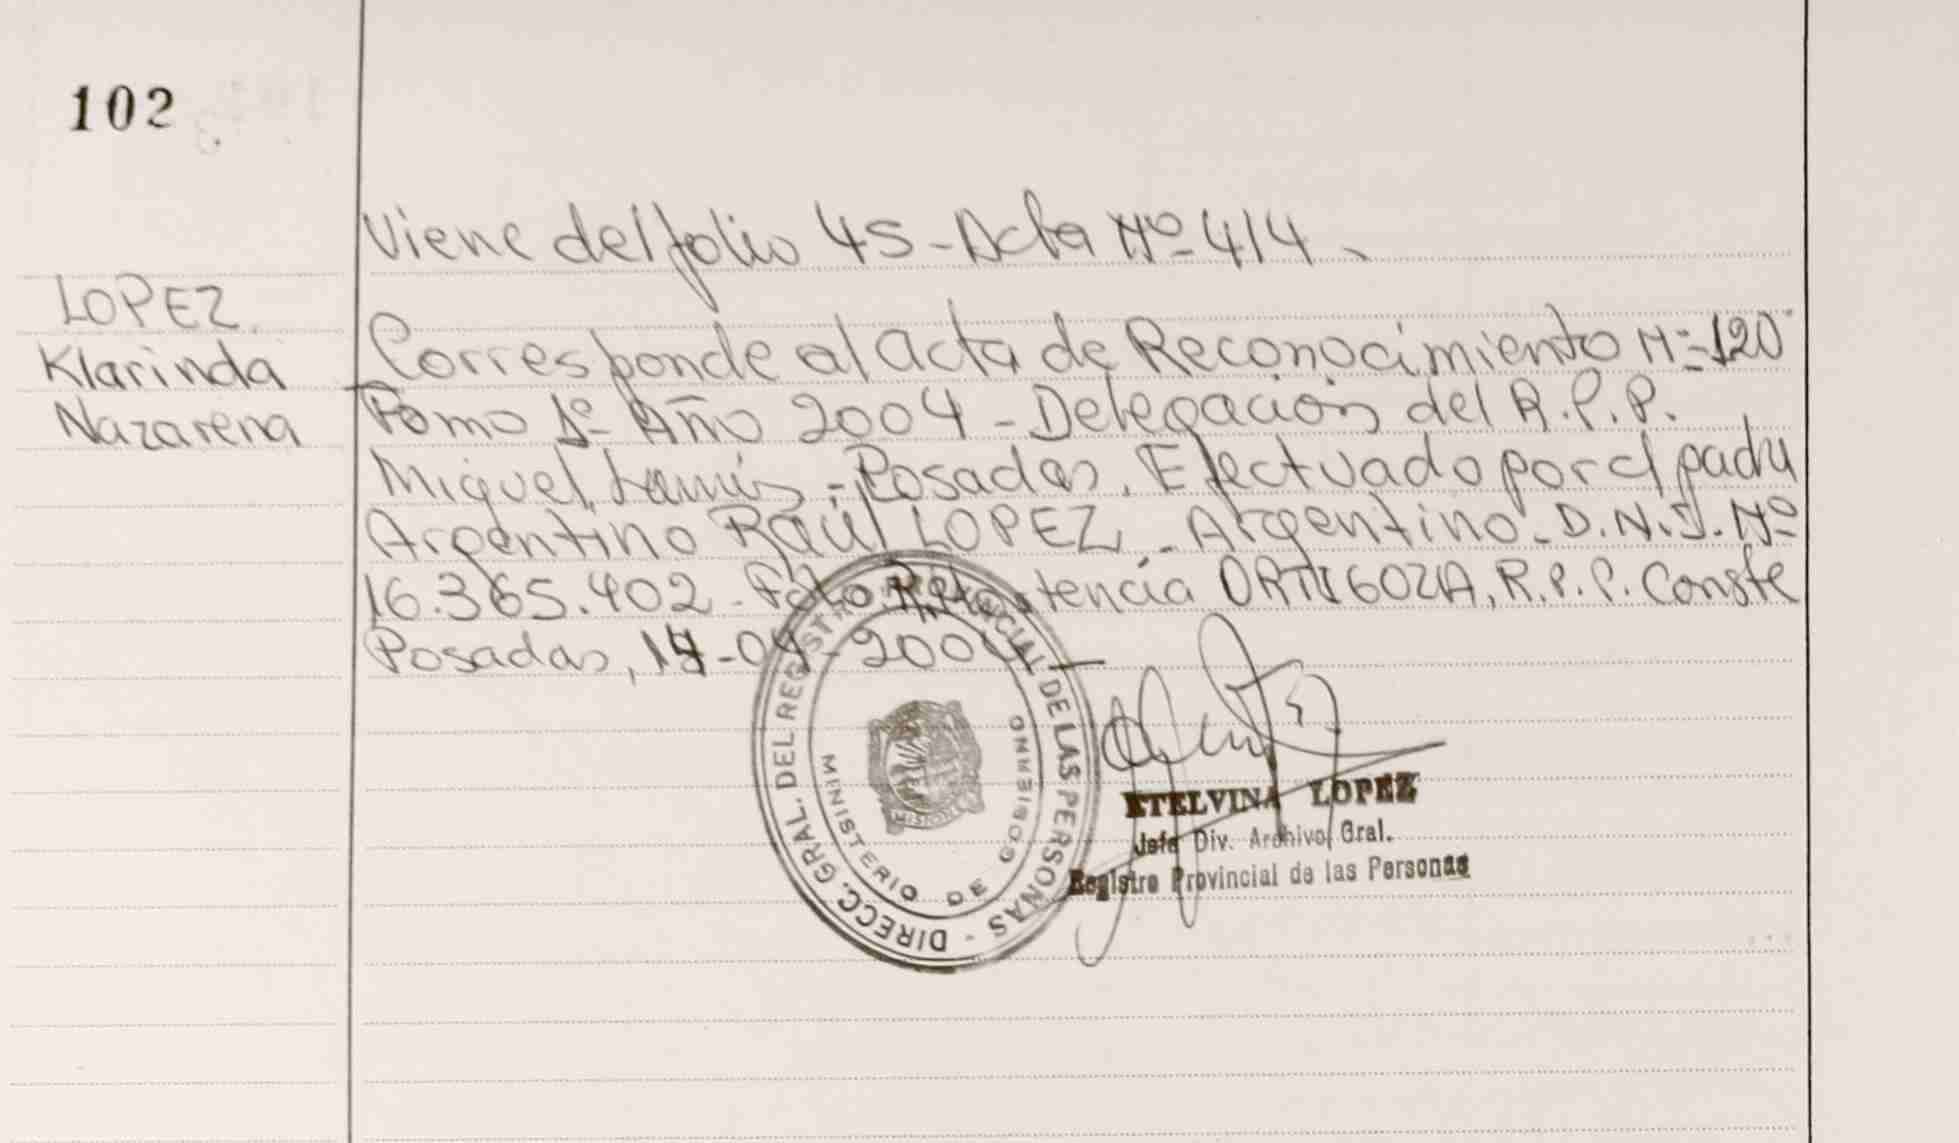 102
LOPEZ
Klarinda
Nazarena
Viene del folio 45 - Acta Nº 414
Corresponde al acta de Reconocimiento Nº 120
Tomo 1º Año 2004 - Delegación del R.P.P.
Miguel Lanús - Posadas. Efectuado por el padre
Argentino Raúl LOPEZ - Argentino - D.N.I. Nº
16.365.402 - ORTIGOZA, R.P.P. Conste
Posadas, 2004
DIRECC. GRAL. DEL REGISTRO PROVINCIAL DE LAS PERSONAS -
MINISTERIO DE GOBIERNO
MISIONES
ETELVINA LOPEZ
Jefa Div. Archivo Gral.
Registro Provincial de las Personas